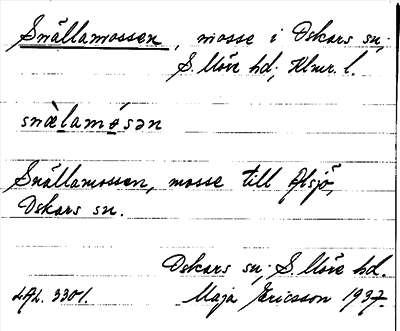 Snällamossen, mosse i Oskars sn;
S. Möre hd; Klmr. l.
snæ̀lamósən
Snällamossen, mosse till Alsjö,
Oskars sn.
Oskars sn; S. Möre hd.
LAL. 3301. Maja Ericsson 1937.